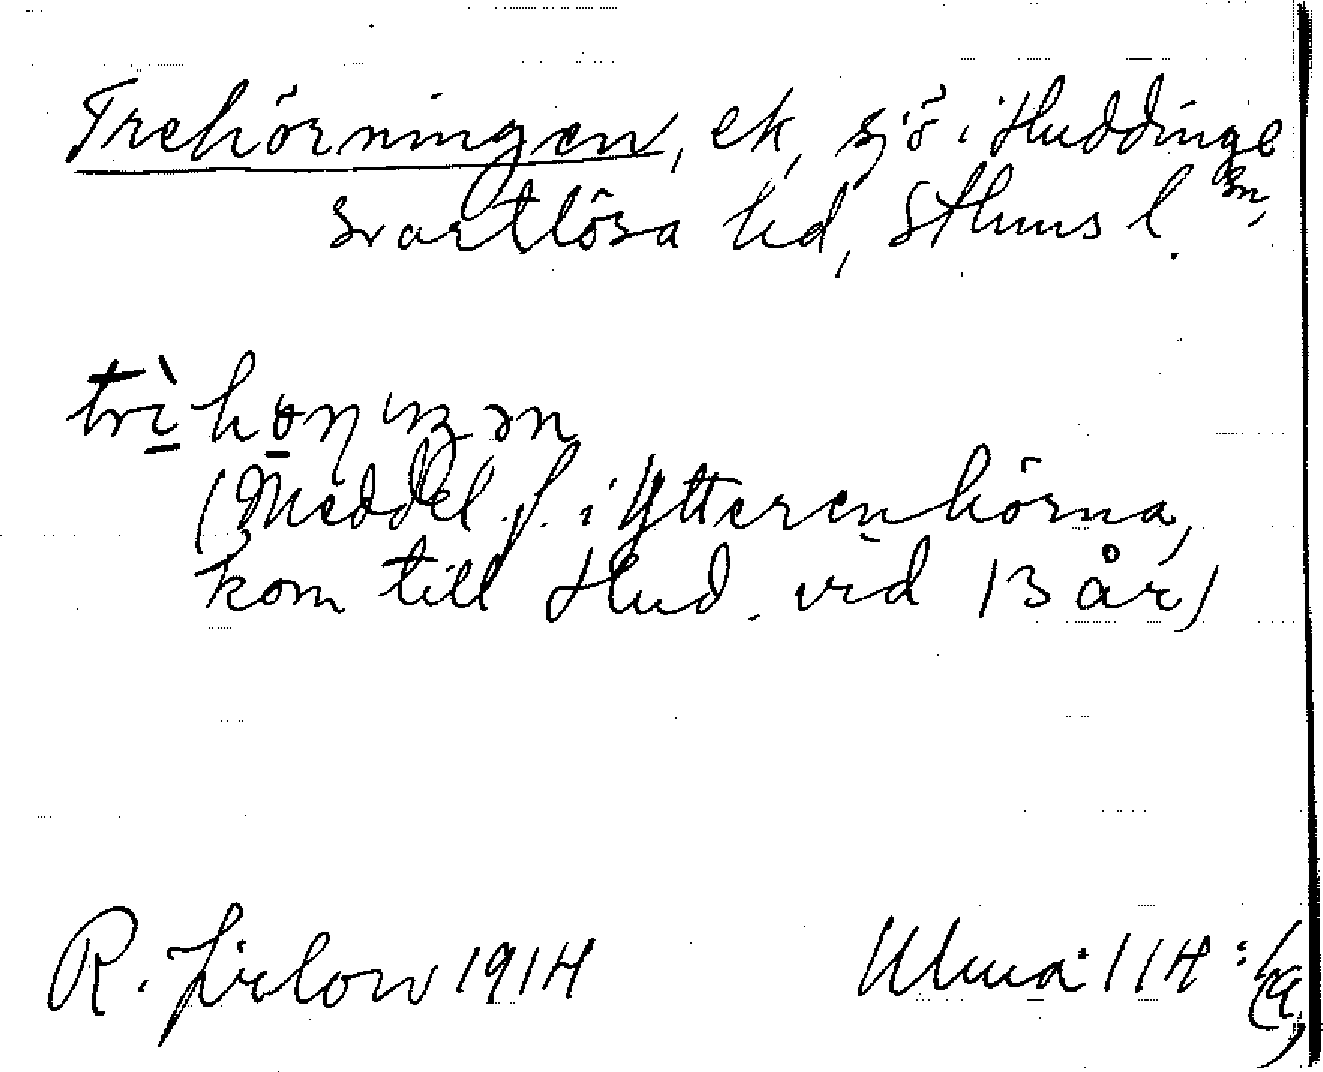 Trehörningen, ek, sjö i Huddinge sn,
Svartlösa hd, Sthms l.
(Meddel. f. i Ytterenhörna,
kom till Hud. vid 13 år)
R. Jirlow 1914
Ulma 114: